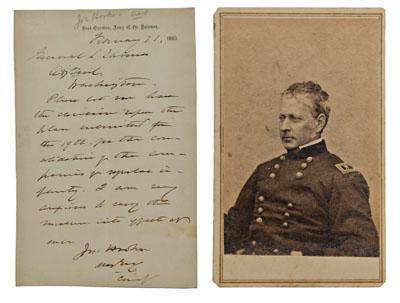 Jos. Hooker
Head-Quarters, Army of the Potomac,
February 21, 1863
General L Thomas
Washington.
Please let me have
the decision upon the
plan submitted for
the 19th for the con-
solidation of the com-
panies of regular in-
fantry. I am very
anxious to carry the
measure into effect at
once
Jos. Hooker
Maj Genl